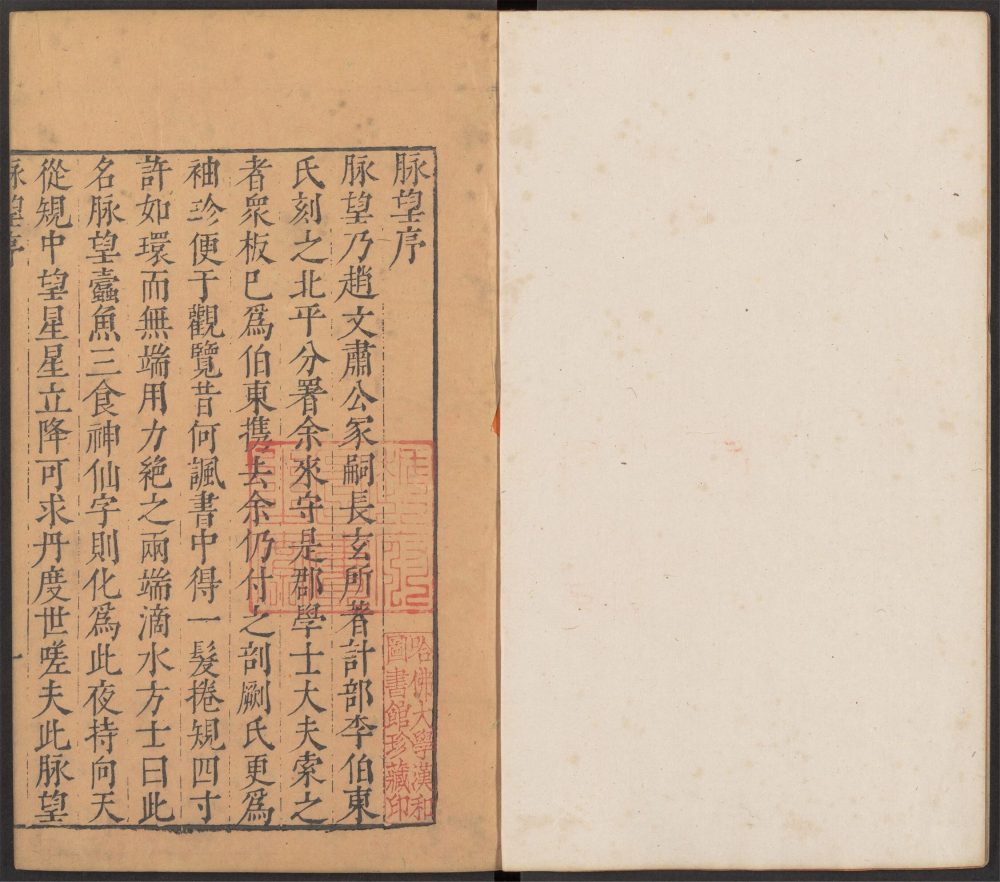 脉望序
脉望乃趙文肅公冢嗣長玄所著計部李伯東
氏刻之北平分署余來守是郡學士大夫索之
者衆板已爲伯東攜去余仍付之剖劂氏更爲
袖珍便于觀覽昔何諷書中得一髮捲規四寸
許如環而無端用力絶之兩端滴水方士曰此
名脉望蠹魚三食神仙字則化爲此夜持向天
從規中望星星立降可求丹度世嗟夫此脉望
脉望序
一
哈佛大學漢和
圖書館珍藏印